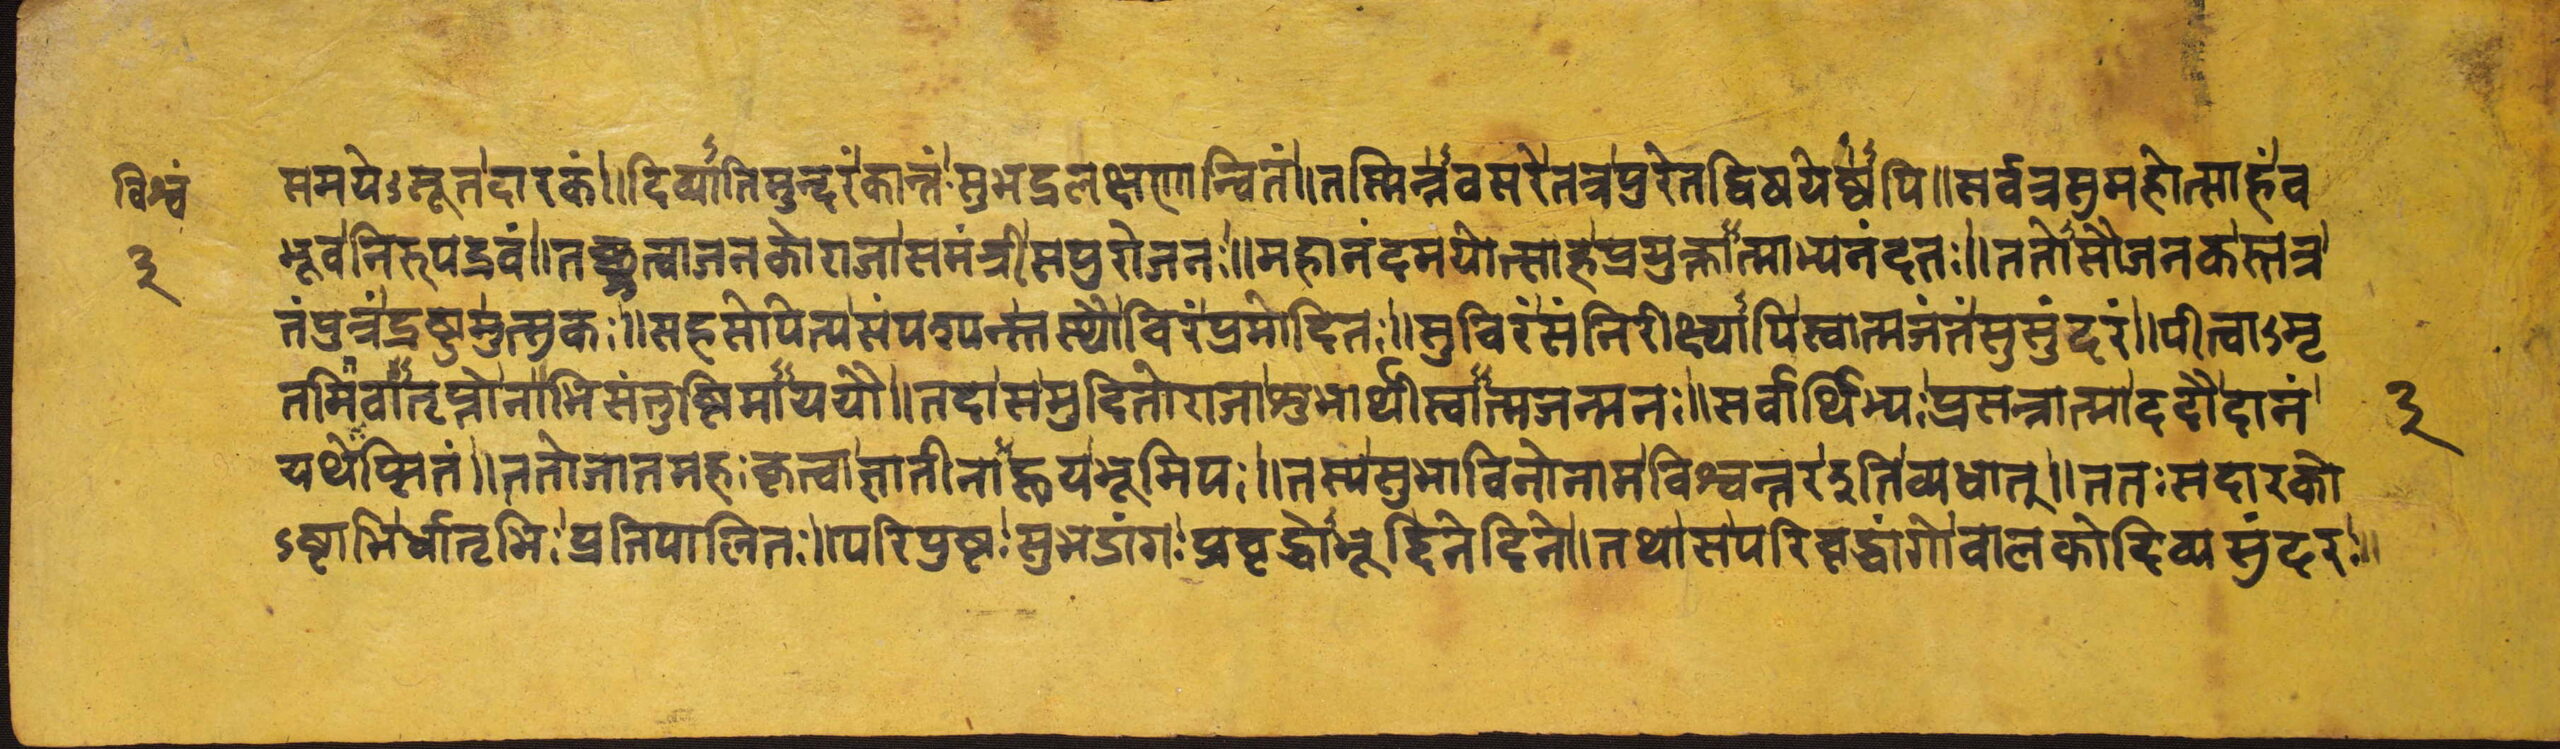 विश्वं
३
समयेऽसूतदारकं॥दिव्यातिसुन्दरंकान्तंसुभद्रलक्षणान्वितं॥तस्मिन्नवसरेतत्रपुरेतद्विषयेष्वपि॥सर्वत्रसुमहोत्साहंव
भूवनिरुपद्रवं॥तच्छ्रुत्वाजनकोराजासमंत्रीसपुरोजनः॥महानंदमयोत्साहप्रयुक्तात्माभ्यनंदतः॥ततोसौजनकस्तत्र
तंपुत्रंद्रष्टुमुत्सुकः॥सहसोपेत्यसंपश्यन्तस्थौचिरंप्रमोदितः॥सुचिरंसंनिरीक्ष्यापिस्वात्मजंतंसुसुंदरं॥पीत्वाऽमृ
तमिवातृप्तोनाभिसंतुष्टिमाययौ॥तदासमुदितोराजाशुभार्थीस्वात्मजन्मनः॥सर्वार्थिभ्यःप्रसन्नात्माददौदानं
३
यथेप्सितं॥ततोजातमहःकृत्वाज्ञातीनाहूयभूमिपः॥तस्यसुभाविनोनामविश्वन्तरइतिव्यधात्॥ततःसदारको
ऽष्टाभिर्धातृभिःप्रतिपालितः॥परिपुष्टःसुभद्रांगःप्रवृद्धोभूद्दिनेदिने॥तथासपरिवृद्धांगोवालकोदिव्यसुंदरः॥